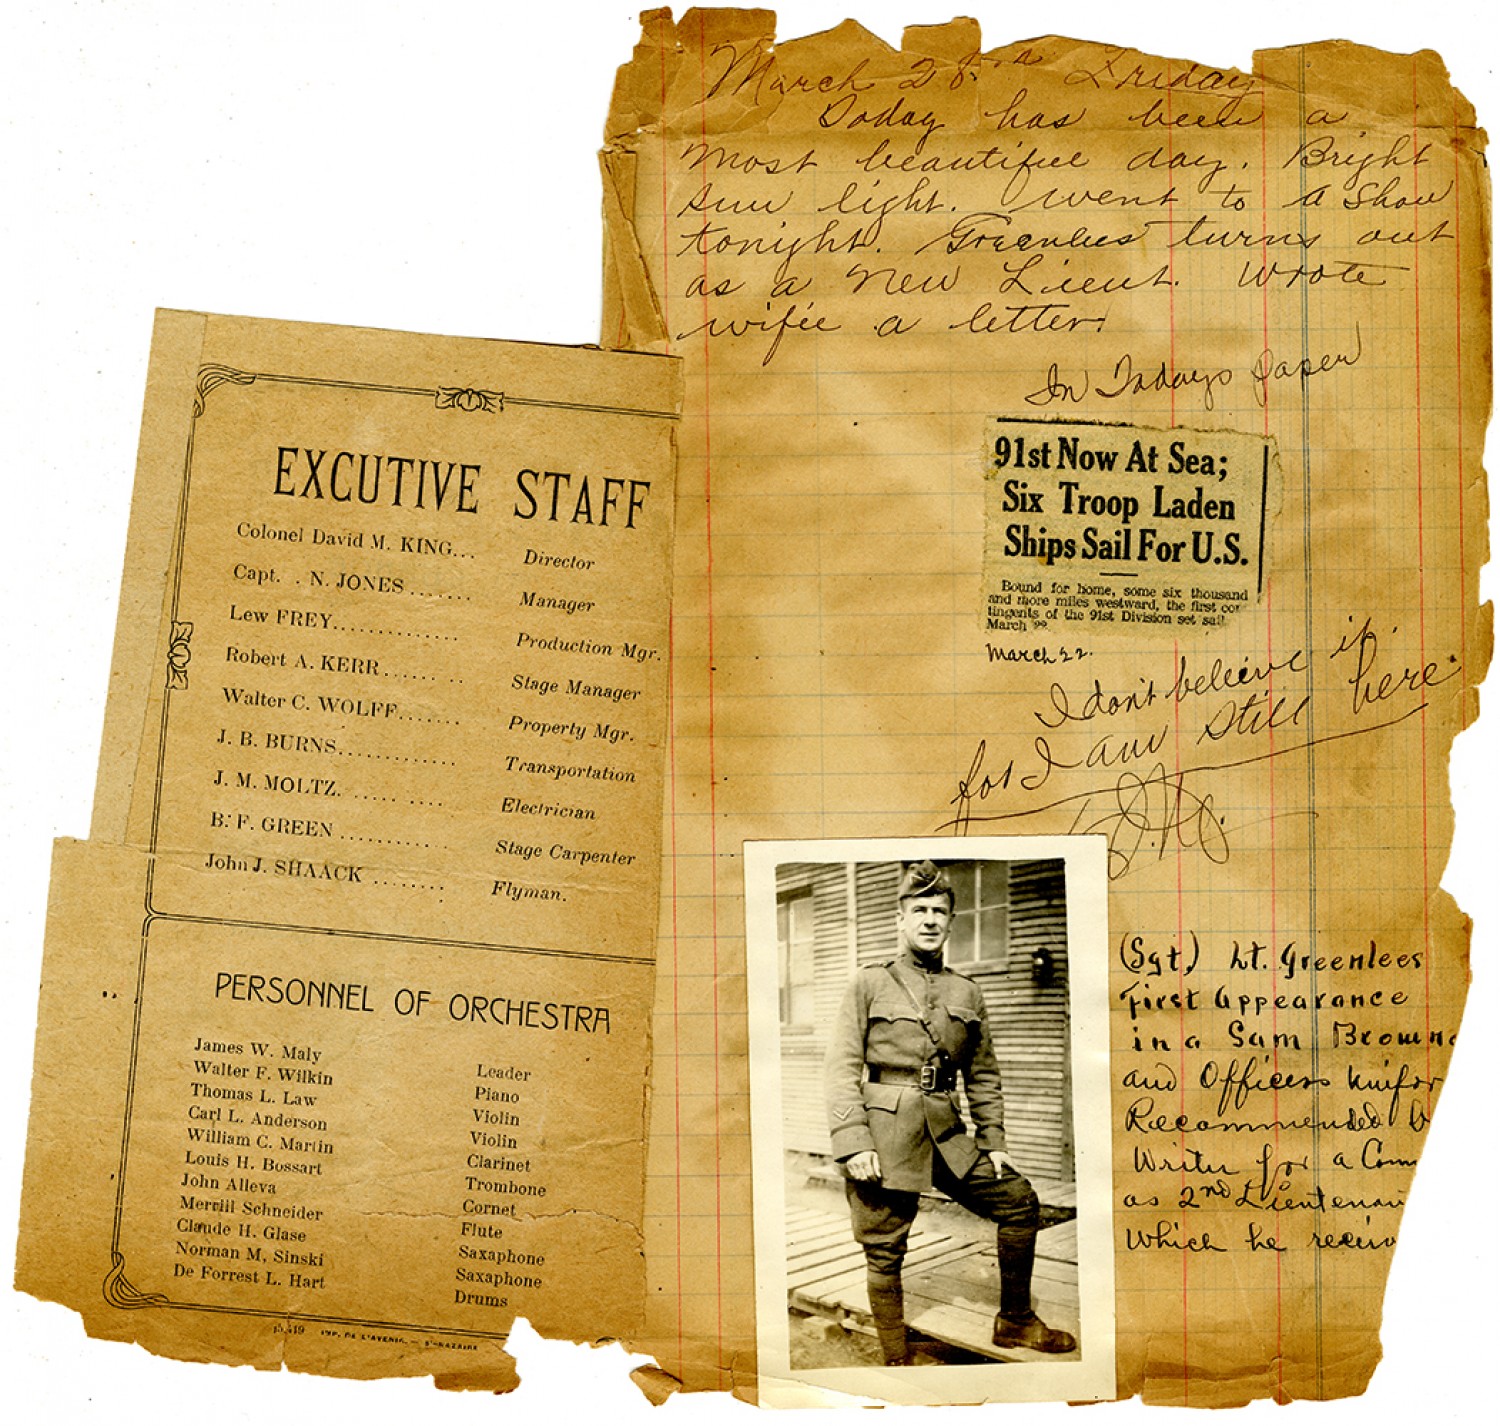 March 28th Friday
Today has been a
most beautiful day. Bright
sun light. Went to a show
tonight. Greenlees turns out
as a new Lieut. Wrote
wifie a letter.
In Todays paper
91st Now At Sea;
Six Troop Laden
Ships Sail For U.S.
Bound for home, some six thousand
and more miles westward, the first con
tingents of the 91st Division set sail
March 22
March 22.
I don't beleive it.
for I am still here.
(Sgt.) Lt. Greenlees
First Appearance
in a Sam Browne
and Officers Unifor
Recommended b
Writer for a Com
as 2nd Lieutenan
Which he receiv
EXCUTIVE STAFF
Colonel David M. KING... Director
Capt. . N. JONES ....... Manager
Lew FREY.............. Production Mgr.
Robert A. KERR...... .. Stage Manager
Walter C. WOLFF....... Property Mgr.
J. B. BURNS............ Transportation
J. M. MOLTZ. ..... .... Electrician
B. F. GREEN ........... Stage Carpenter
John J. SHAACK ........ Flyman.
PERSONNEL OF ORCHESTRA
James W. Maly Leader
Walter F. Wilkin Piano
Thomas L. Law Violin
Carl L. Anderson Violin
William C. Martin Clarinet
Louis H. Bossart Trombone
John Alleva Cornet
Merrill Schneider Flute
Claude H. Glase Saxophone
Norman M, Sinski Saxophone
De Forrest L. Hart Drums
IMP. DE L'AVENIR. — St-NAZAIRE